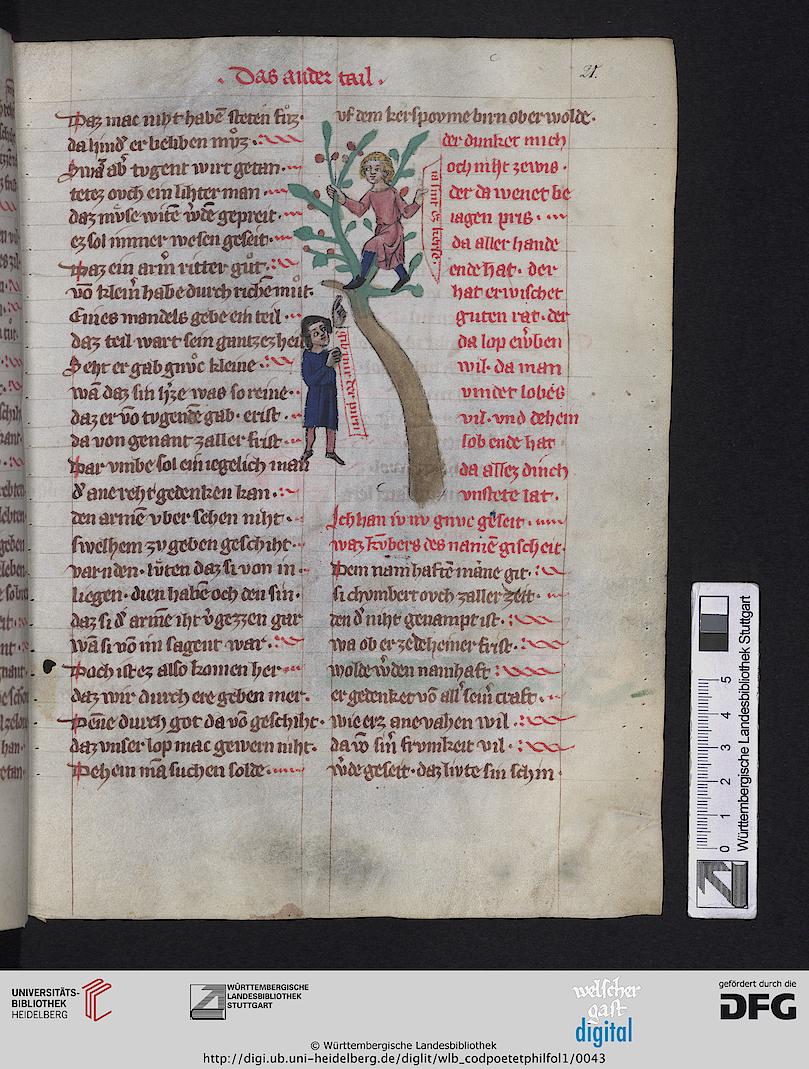 · Das ander tail ·
21.
Daz mac niht habē steten fůz·
da hindʾ er beliben můz·
Swaz abʾ tvgent wirt getan·
tetez ovch ein lihter man·
ez sol nimmer wesen geseit·
Daz ein arm ritter gůt·
vō kleinʾ habe durch richē můt·
Eines mandels gebe ein teil·
daz teil wart sein gantzez heil
Seht er gab gnvc kleine·
wā daz sin h͛ze was so reine·
daz er vō tvgende gab· er ist·
da von genant zaller frist·
Dar vmbe sol ein iegelich man
dʾ ane reht gedenken kan·
den armē vber sehen niht·
swelhem zv geben geschiht·
varnden· lůten daz si von in·
liegen· dien habē och den sin·
daz si dʾ armē iht vʾgezzen gar
wā si vō im sagent war·
Doch ist ez also komen her
daz wir durch ere geben mer·
Dēne durch got da vō geschiht·
daz vnser lop mac gewern niht·
Dehein mā suchen solde·
vf dem kerspovme birn ober wolde·
der dunket mich
och niht zewis·
der da wenet be
iagen pris·
da aller hande
ende hat· der
hat erwischet
guten rat· der
da lop erwʾben
wil· da man
vindet lobes
vil· vnd dehein
lob ende hat
da allez durch
vnstete lat·
Ich han iv nv gnvc geseit·
Dem namhaftē māne git·
si chvmbert ovch zaller zeit·
den dʾ niht genampt ist·
wa ob er ze deheiner frist·
wolde wʾden namhaft
er gedenket vō all seinʾ craft·
wie erz ane vahen wil·
da vō sinʾ frvmkeit vil·
wʾde geseit· daz livte sin schin·
gib mir der pirn
0 1 2 3 4 5
Württembergische Landesbibliothek Stuttgart
UNIVERSITÄTS-
BIBLIOTHEK
HEIDELBERG
WÜRTTEMBERGISCHE
LANDESBIBLIOTHEK
STUTTGART
welscher
gast
digital
gefördert durch die
DFG
© Württembergische Landesbibliothek
http://digi.ub.uni-heidelberg.de/diglit/wlb_codpoetetphilfol1/0043